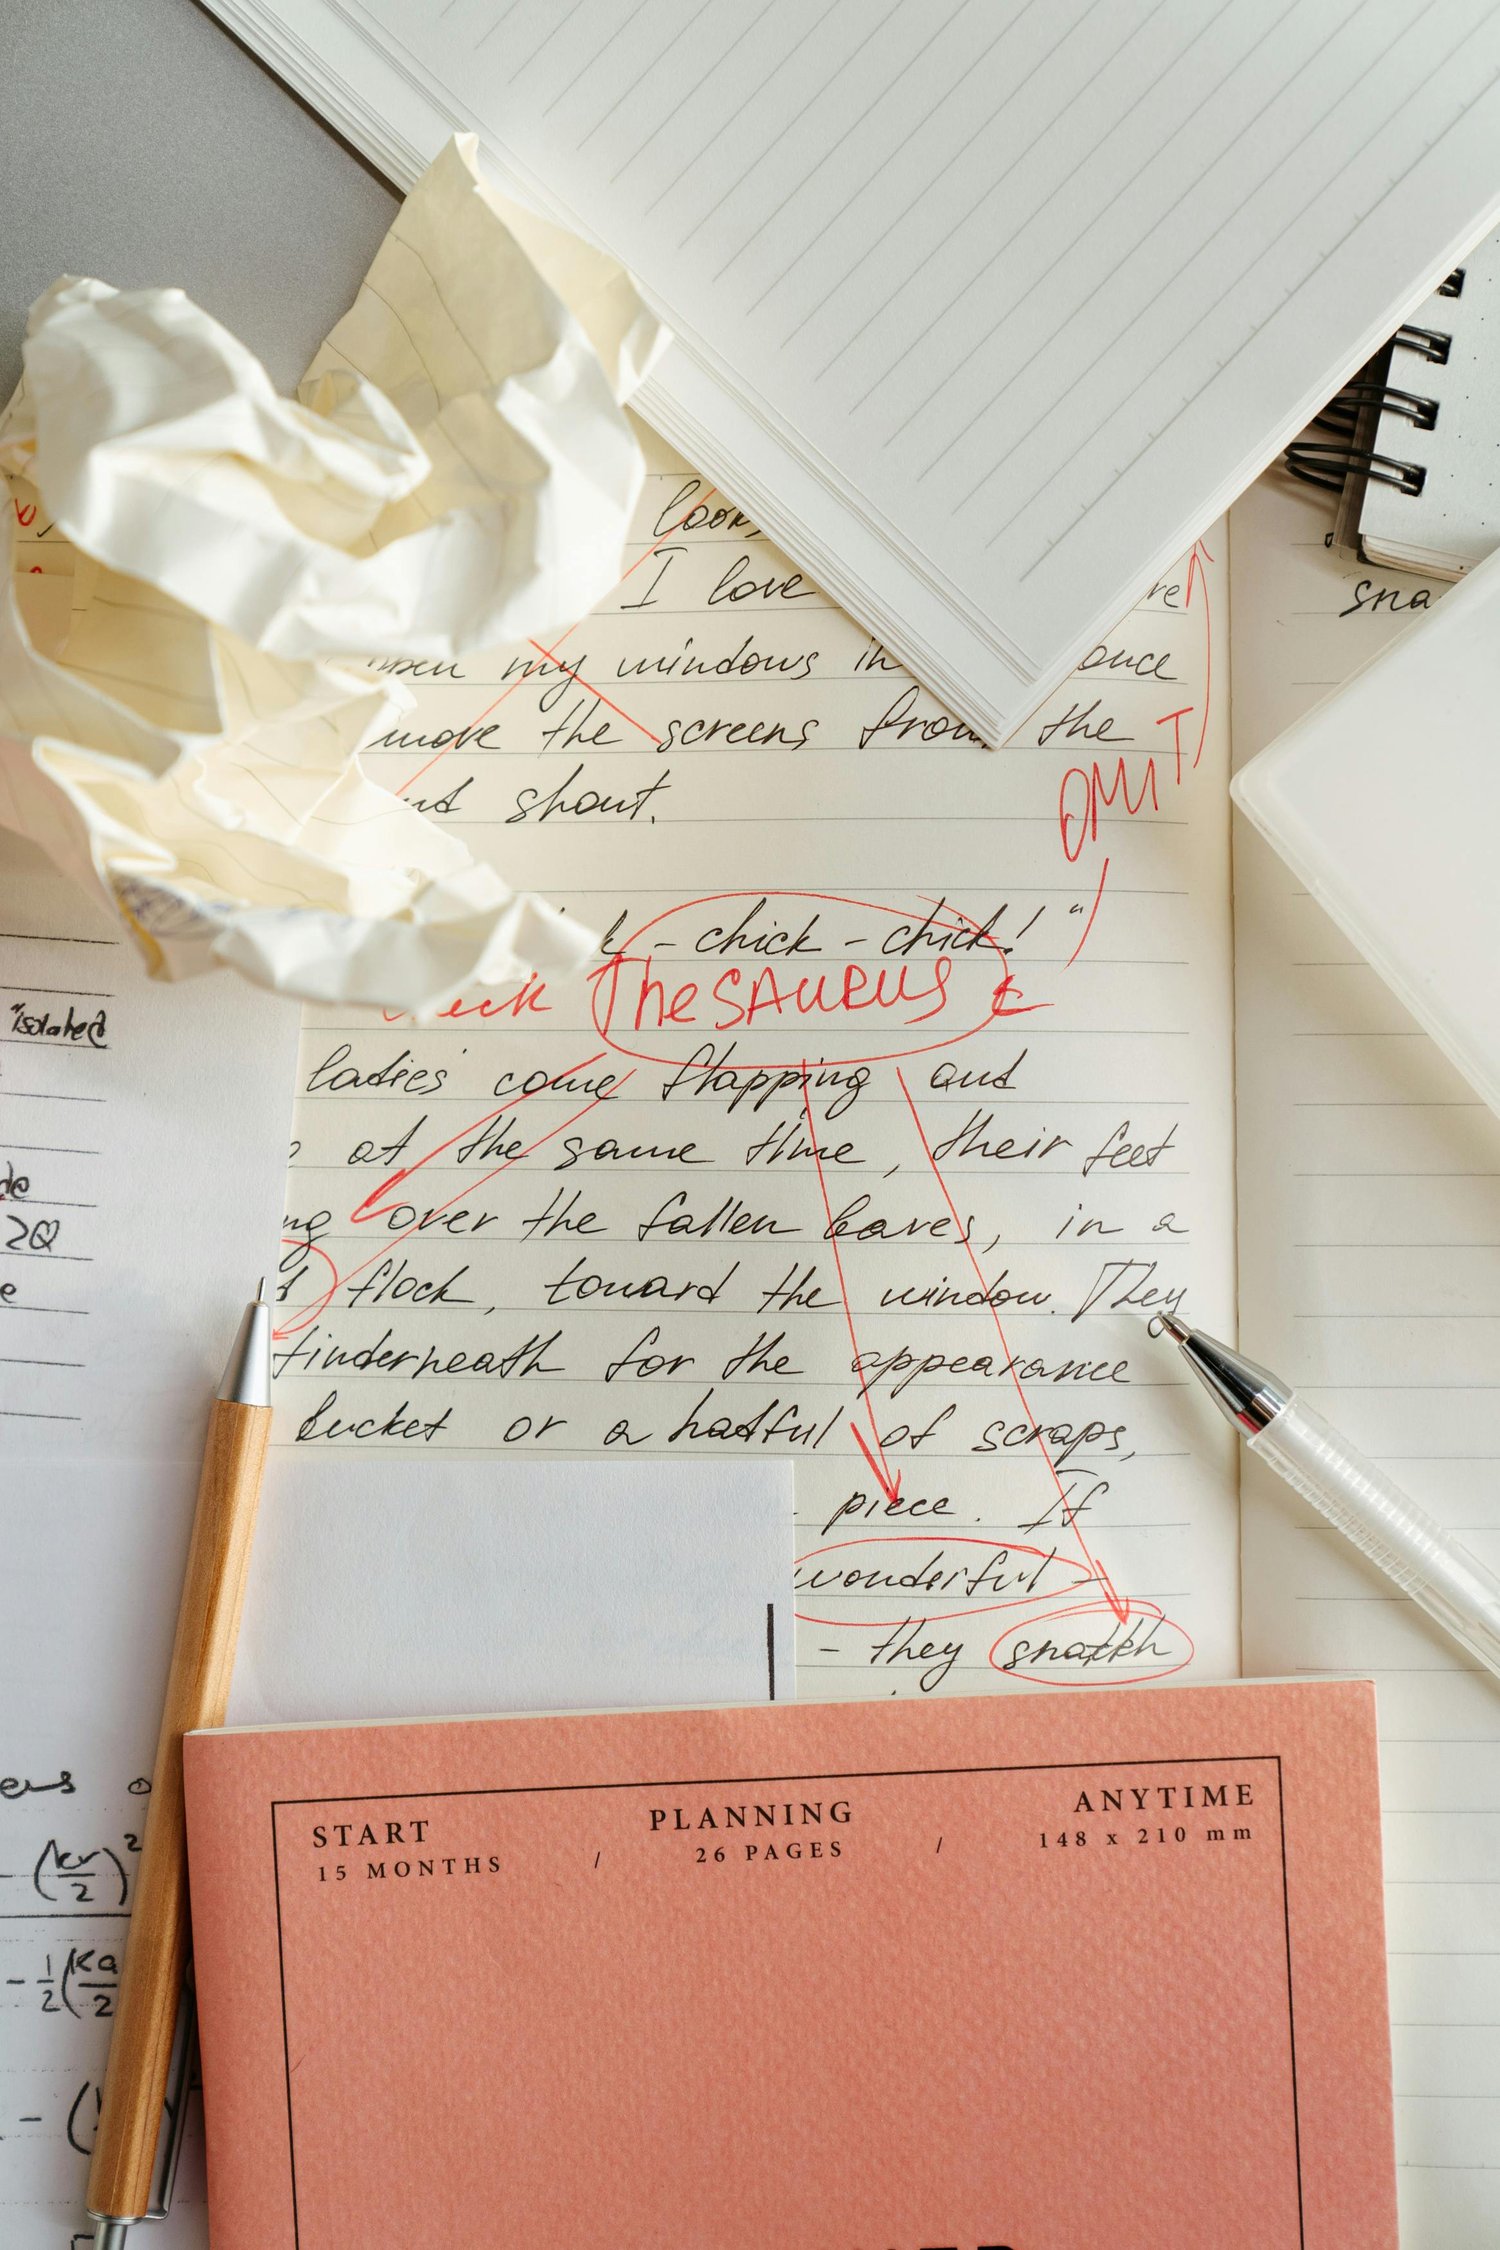 look,
I love
my windows in once
move the screens from the
shout.
OMIT
- chick - chick! "
Thesaurus
ladies come flapping and
at the same time, their feet
over the fallen leaves, in a
flock, toward the window. They
underneath for the appearance
bucket or a hatful of scraps,
piece. If
wonderful -
- they snatch
sna
"isolated
2Q
(kr/2)²
- 1/2 (ka/2
- (
START
15 MONTHS
/
PLANNING
26 PAGES
/
ANYTIME
148 x 210 mm